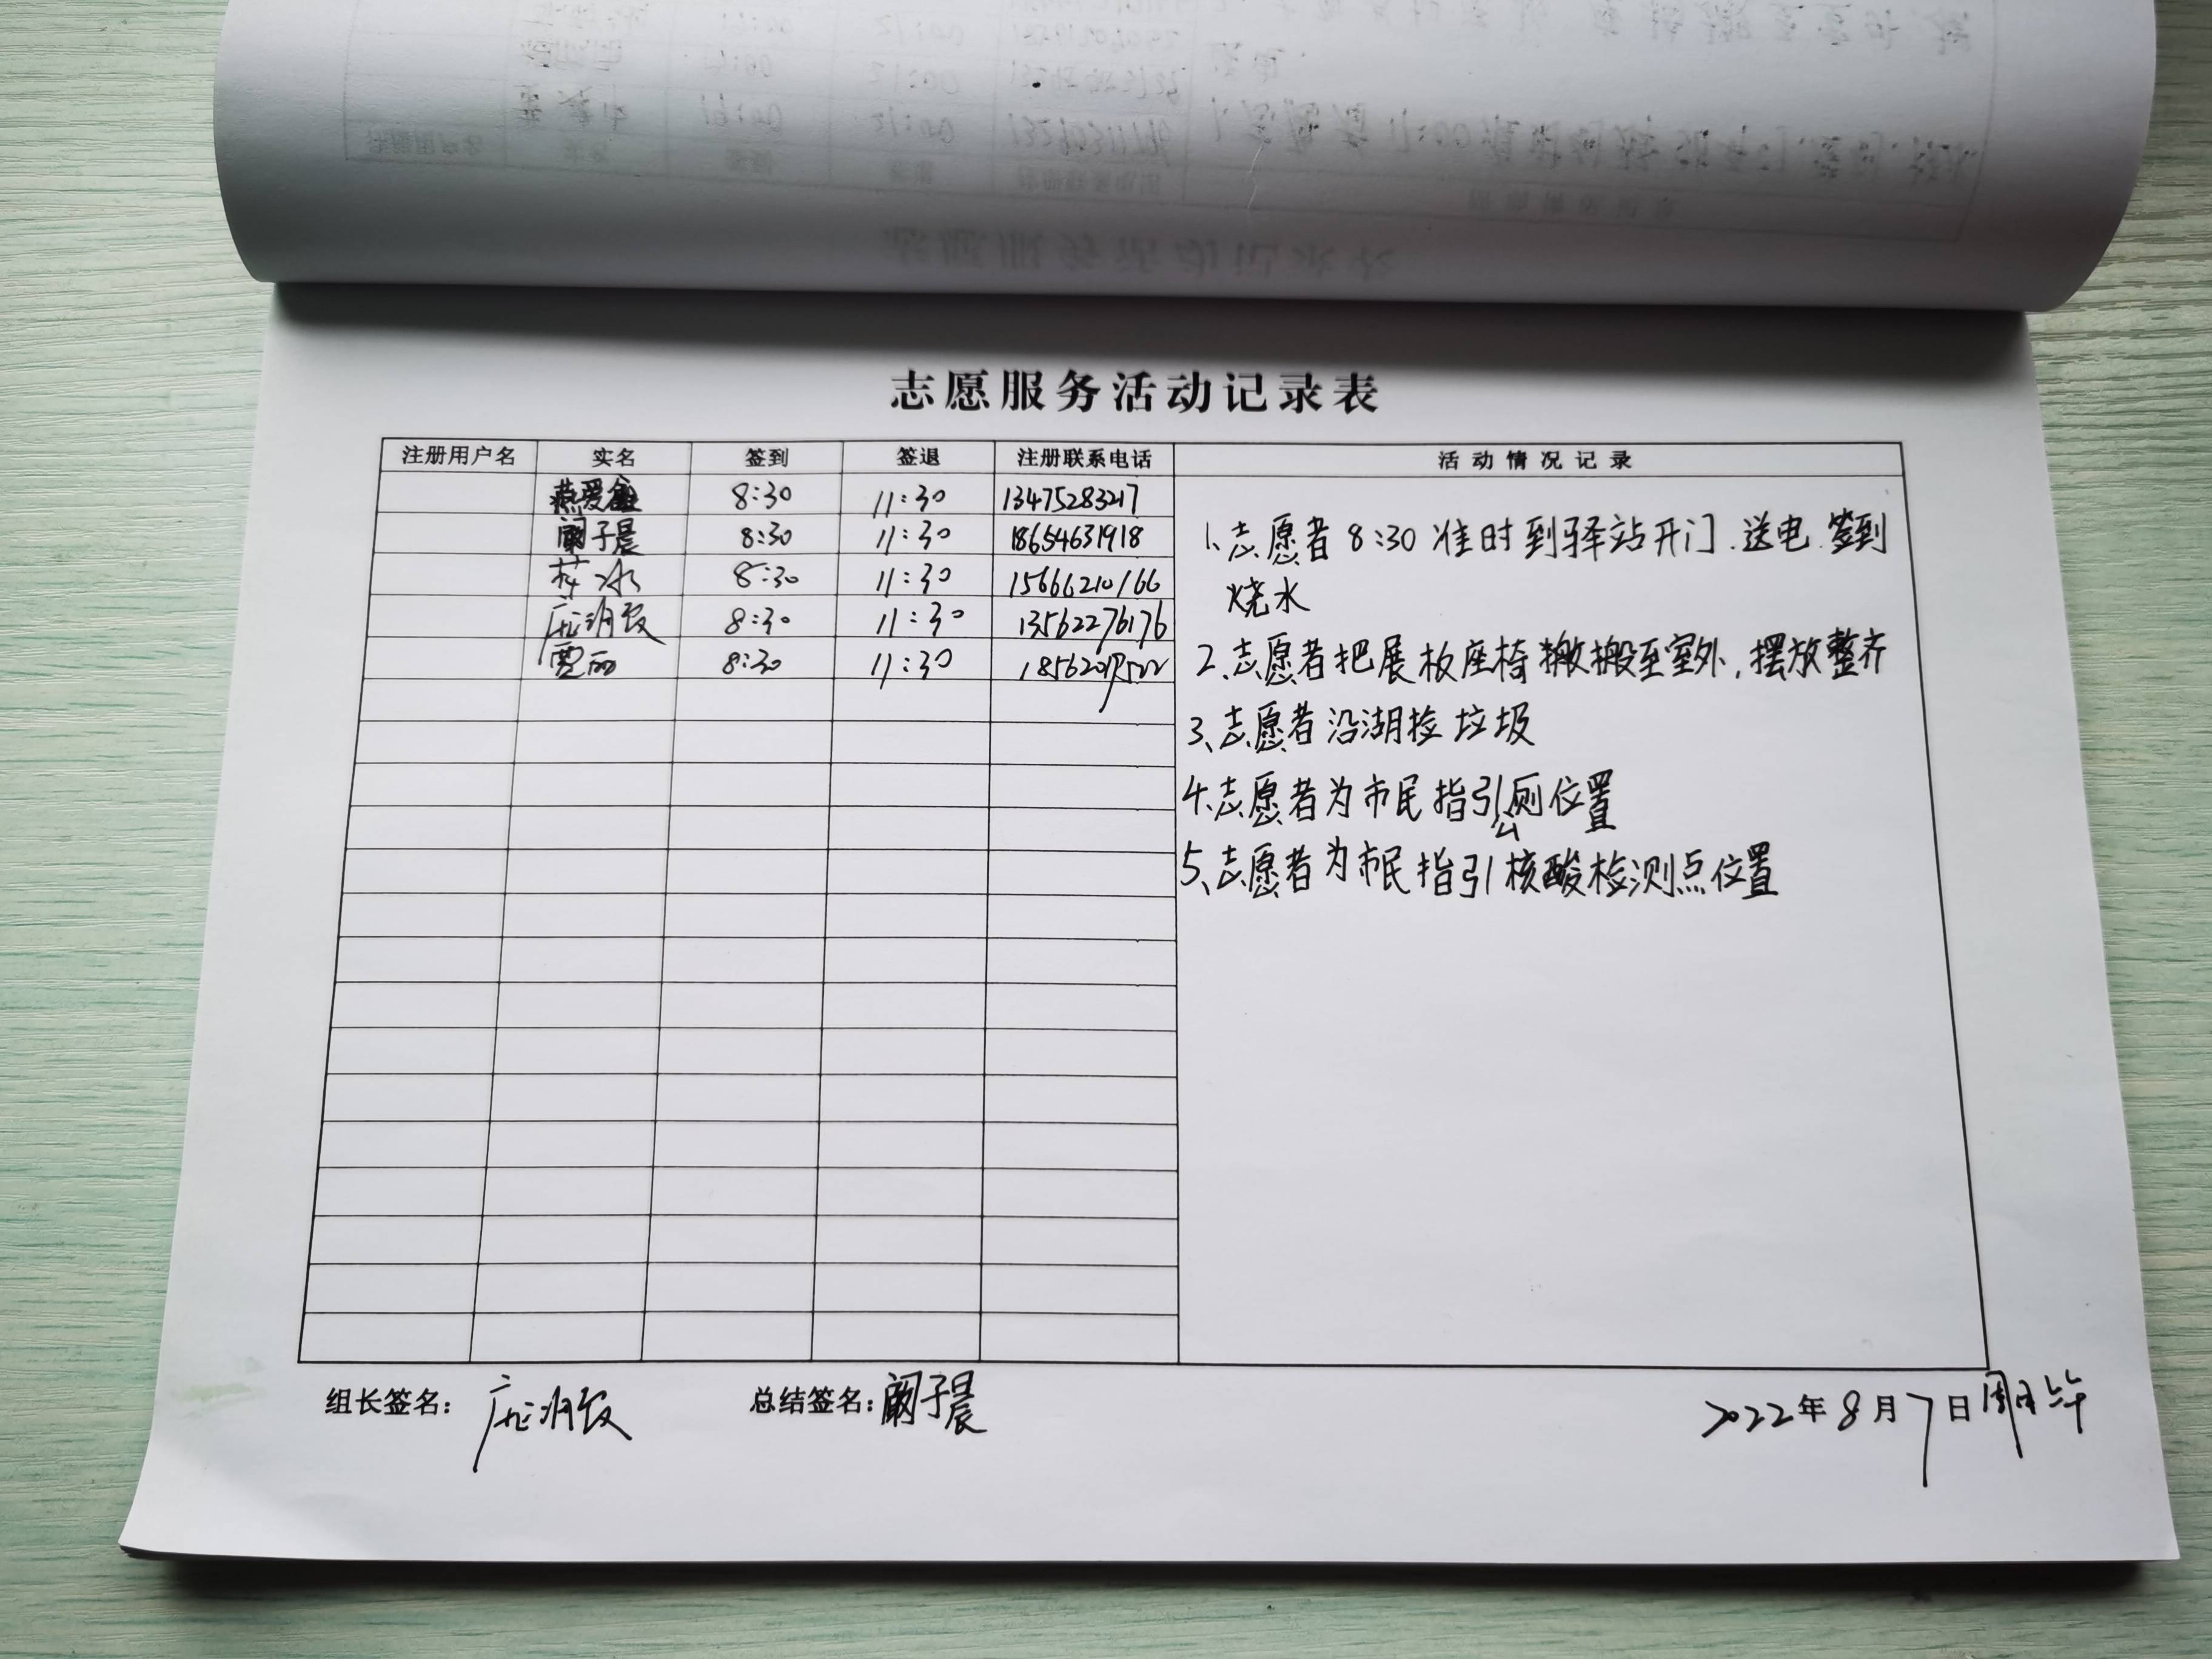 志愿服务活动记录表
注册用户名 实名 签到 签退 注册联系电话 活动情况记录
8:30 11:30 13475283217
阚子晨 8:30 11:30 18654631918
8:30 11:30 15666210166
8:30 11:30 13562276176
贾丽 8:30 11:30
1、志愿者8:30准时到驿站开门.送电.签到
烧水
2、志愿者把展板座椅搬至室外,摆放整齐
3、志愿者沿湖捡垃圾
4、志愿者为市民指引公厕位置
5、志愿者为市民指引核酸检测点位置
组长签名: 总结签名:阚子晨 2022年8月7日周日上午